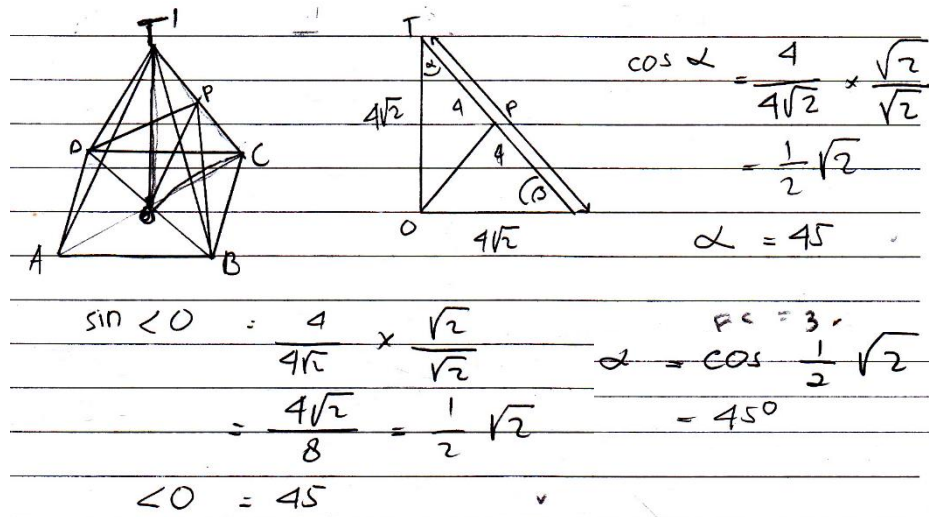 T
P
D
C
O
A
B
T
α
4√2
4
P
4
β
O
4√2
cos α = 4/4√2 × √2/√2
= 1/2 √2
α = 45
sin <O = 4/4√2 × √2/√2
= 4√2/8 = 1/2 √2
<O = 45
= 3.
α = cos 1/2 √2
= 45°